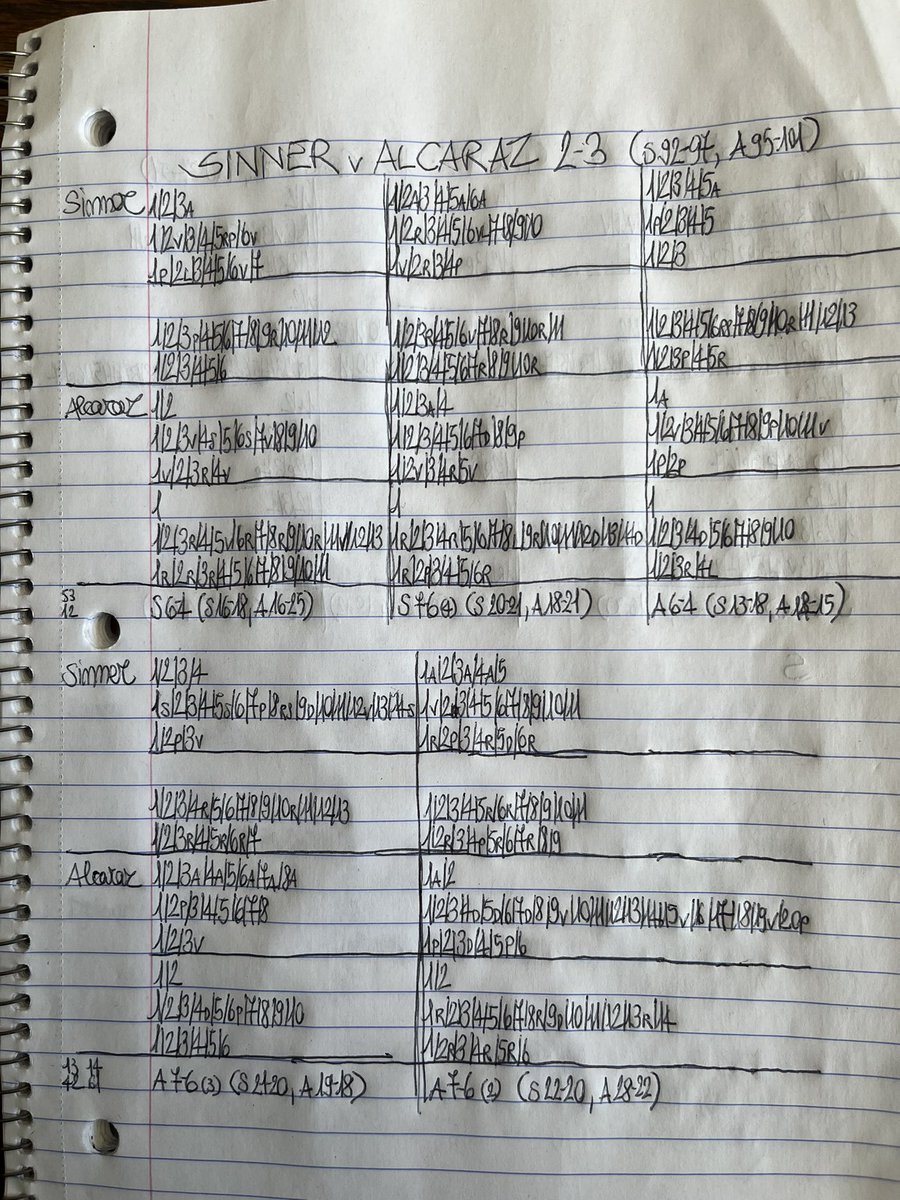 SINNER v ALCARAZ 2-3 (S 92-97, A 95-101)
Sinner 1|2|3A 1|2A|3|4|5A|6A 1|2|3|4|5A
1|2V|3|4|5RP|6V 1|2R|3|4|5|6V|7|8|9|10 1P|2|3|4|5
1P|2R|3|4|5|6V|7 1V|2R|3|4P 1|2|3
1|2|3P|4|5|6|7|8|9R|10|11|12 1|2|3R|4|5|6V|7|8R|9|10R|11 1|2|3|4|5|6RP|7|8|9|10R|11|12|13
1|2|3|4|5|6 1|2|3|4|5|6|7R|8|9|10R 1|2|3P|4|5R
Alcaraz 1|2 1|2|3A|4 1A
1|2|3V|4S|5|6S|7V|8|9|10 1|2|3|4|5|6|7D|8|9P 1|2V|3|4|5|6|7|8|9P|10|11V
1V|2|3R|4V 1|2V|3|4R|5V 1P|2P
1 1 1
1|2|3R|4|5V|6R|7|8R|9|10R|11V|12|13 1|2|3|4D|5|6|7|8|9|10
1R|2R|3R|4|5|6|7|8|9|10|11 1R|2P|3|4|5|6R 1|2|3R|4L
S 6-4 (S 16-18, A 16-25) S 7-6 (4) (S 20-21, A 18-21) A 6-4 (S 13-18, A 12-15)
Sinner 1|2|3|4 1A|2|3A|4A|5
1S|2|3|4|5S|6|7P|8RS|9D|10|11|12V|13|14S 1V|2|3|4|5|6|7|8|9|10|11
1|2P|3V 1R|2P|3|4R|5D|6R
1|2|3|4R|5|6|7|8|9|10R|11|12|13 1|2|3|4|5R|6R|7|8|9|10|11
1|2|3R|4|5R|6R|7 1|2R|3|4P|5R|6|7R|8|9
Alcaraz 1|2|3A|4A|5|6A|7A|8A 1A|2
1|2P|3|4|5|6|7|8
1|2|3V 1P|2|3D|4|5P|6
1|2 1|2
1|2|3|4D|5|6P|7|8|9|10 1R|2|3|4|5|6|7|8R|9D|10|11|12|13R|14
1|2|3|4|5|6 1|2R|3|4R|5R|6
A 7-6 (3) (S 21-20, A 19-18) A 7-6 (2) (S 22-20, A 28-22)